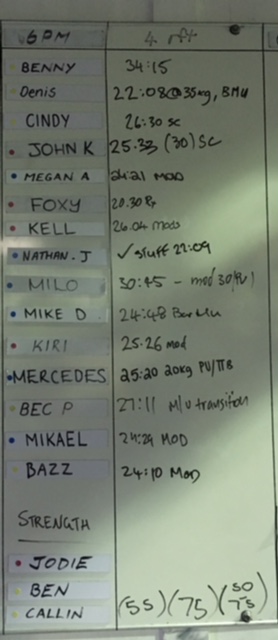 6PM 4 rft
BENNY 34:15
Denis 22:08@35kg, BMU
CINDY 26:30 sc
JOHN K 25.33 (30) SC
MEGAN A 24:21 MOD
FOXY 20.30 Rx
KELL 26.04 mods
NATHAN.J ✓ stuff 22:09
MILO 30:45 - mod 30/
MIKE D 24:48 Bar Mu
KIRI 25.26 mod
MERCEDES 25:20 20kg PU/TTB
BEC P 27:11 M/U transition
MIKAEL 24:24 MOD
BAZZ 24:10 MOD
STRENGTH
JODIE
BEN
CALLIN (55) (75) (50 75)